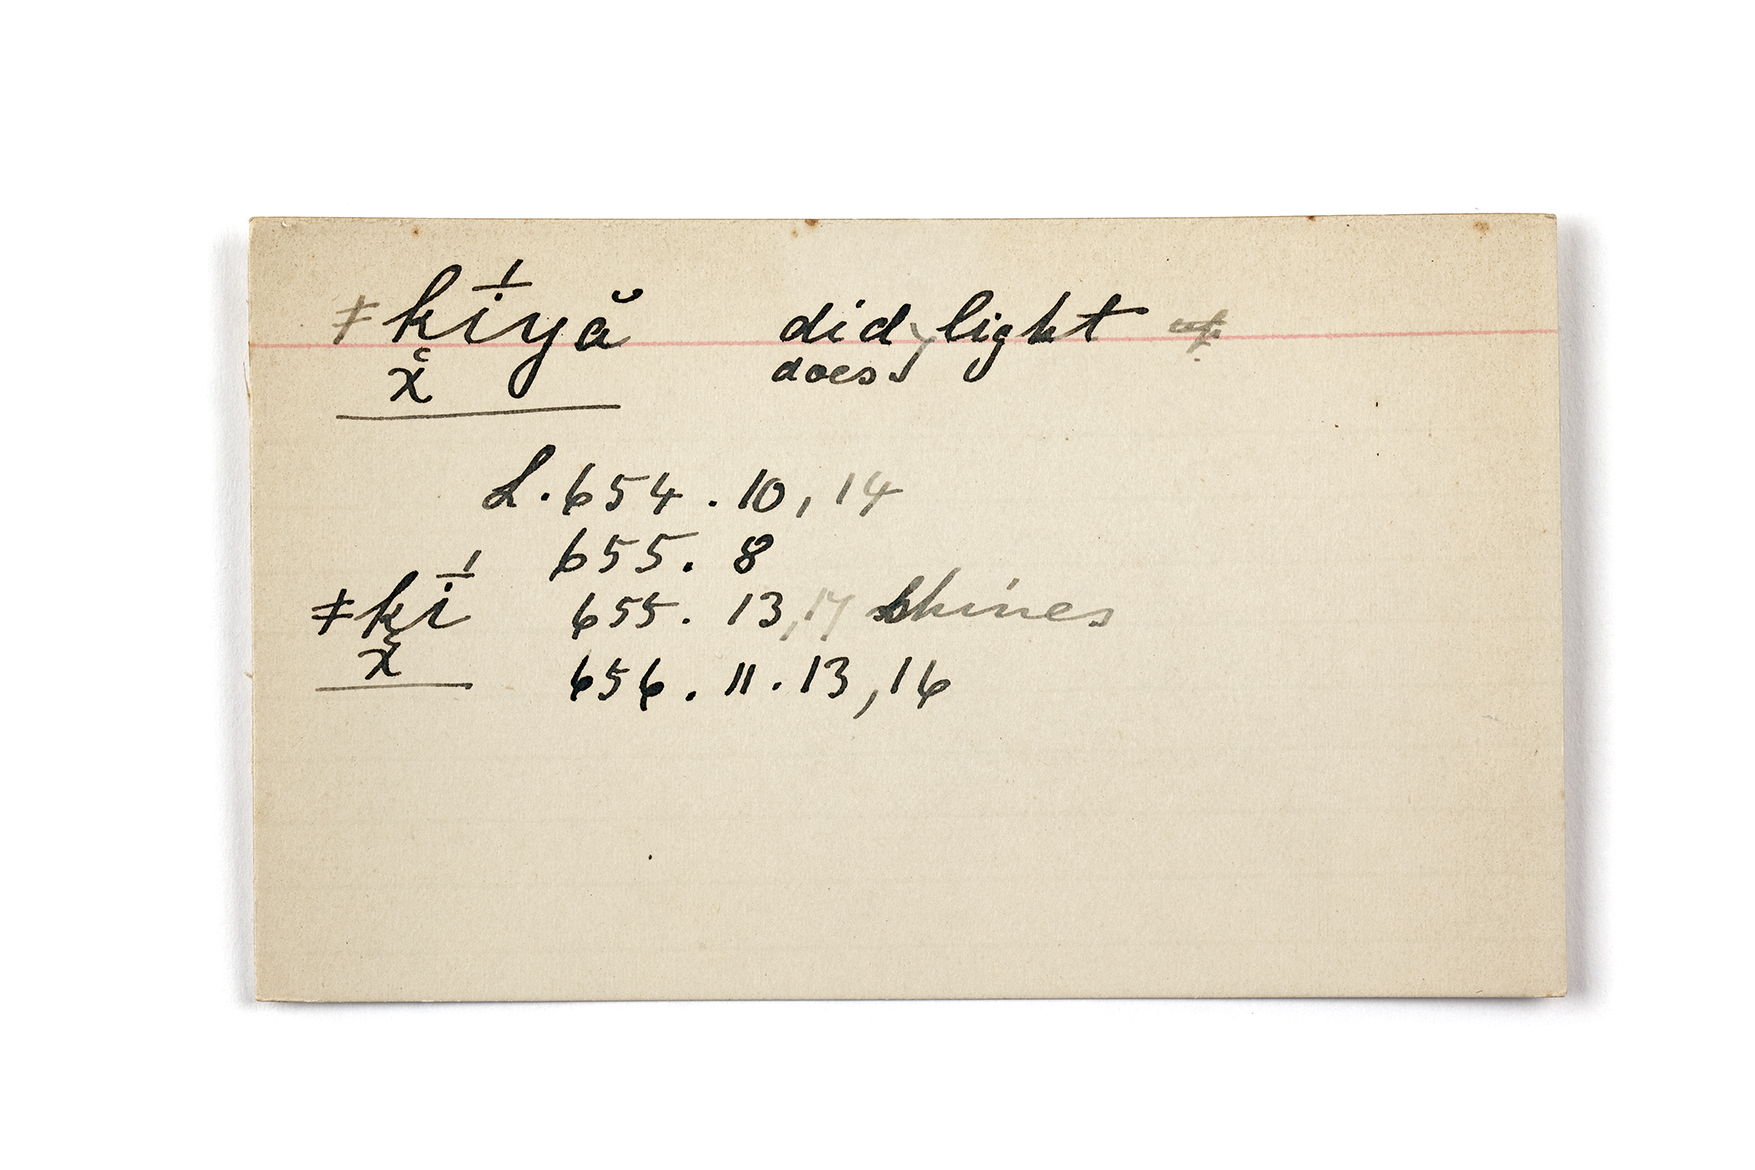 ǂkī́yă did, light
x̣ does
L. 654. 10, 14
655. 8
ǂkī́ 655. 13, 17 shines
x̣
656. 11. 13, 16